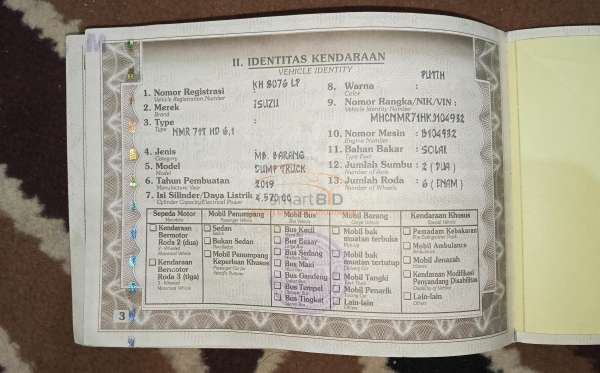 II. IDENTITAS KENDARAAN
VEHICLE IDENTITY
1. Nomor Registrasi KH 8076 LP
Vehicle Registration Number
2. Merek ISUZU
Brand
3. Type :
Type
NMR 71T HD 6.1
4. Jenis MB. BARANG
Category
5. Model DUMP TRUCK
Model
6. Tahun Pembuatan 2019
Manufacture Year
7. Isi Silinder/Daya Listrik 4.570.00
Cylinder Capacity/Electrical Power
8. Warna : PUTIH
Color
9. Nomor Rangka/NIK/VIN :
Vehicle Identity Number
MHCNMR71HKJ104932
10. Nomor Mesin : B104932
Engine Number
11. Bahan Bakar : SOLAR
Type Fuel
12. Jumlah Sumbu : 2 (DUA)
Number of Axis
13. Jumlah Roda : 6 (ENAM)
Number of Wheels
artBID
Sepeda Motor
Motorbike
Kendaraan
Bermotor
Roda 2 (dua)
2 - Wheeled
Motorized Vehicle
Kendaraan
Bermotor
Roda 3 (tiga)
3 - Wheeled
Motorized Vehicle
Mobil Penumpang
Passenger Vehicle
Sedan
Sedan
Bukan Sedan
Non Sedan
Mobil Penumpang
Keperluan Khusus
Mobil Bus
Bus Vehicle
Bus Kecil
Bus Besar
Bus Sedang
Bus Maxi
Bus Gandeng
Bus Tempel
Bus Tingkat
Mobil Barang
Cargo Vehicle
Mobil bak
muatan terbuka
Mobil bak
muatan tertutup
Mobil Tangki
Mobil Penarik
Lain-lain
Others
Kendaraan Khusus
Special Vehicle
Pemadam Kebakaran
Mobil Ambulance
Mobil Jenazah
Kendaraan Modifikasi
Penyandang Disabilitas
Lain-lain
Others
3